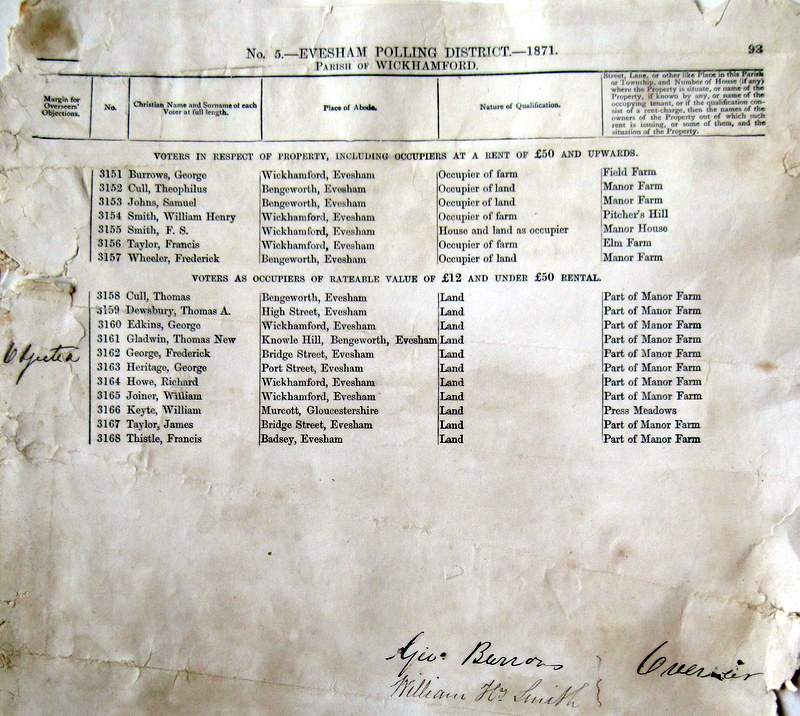 No. 5.—EVESHAM POLLING DISTRICT.—1871. 93
PARISH OF WICKHAMFORD.
Margin for Overseers' Objections. No. Christian Name and Surname of each Voter at full length. Place of Abode. Nature of Qualification. Street, Lane, or other like Place in this Parish or Township, and Number of House (if any) where the Property is situate, or name of the Property, if known by any, or name of the occupying tenant, or if the qualification consist of a rent-charge, then the names of the owners of the Property out of which such rent is issuing, or some of them, and the situation of the Property.
VOTERS IN RESPECT OF PROPERTY, INCLUDING OCCUPIERS AT A RENT OF £50 AND UPWARDS.
3151 Burrows, George Wickhamford, Evesham Occupier of farm Field Farm
3152 Cull, Theophilus Bengeworth, Evesham Occupier of land Manor Farm
3153 Johns, Samuel Bengeworth, Evesham Occupier of land Manor Farm
3154 Smith, William Henry Wickhamford, Evesham Occupier of farm Pitcher's Hill
3155 Smith, F. S. Wickhamford, Evesham House and land as occupier Manor House
3156 Taylor, Francis Wickhamford, Evesham Occupier of farm Elm Farm
3157 Wheeler, Frederick Bengeworth, Evesham Occupier of land Manor Farm
VOTERS AS OCCUPIERS OF RATEABLE VALUE OF £12 AND UNDER £50 RENTAL.
3158 Cull, Thomas Bengeworth, Evesham Land Part of Manor Farm
3159 Dewsbury, Thomas A. High Street, Evesham Land Part of Manor Farm
3160 Edkins, George Wickhamford, Evesham Land Part of Manor Farm
3161 Gladwin, Thomas New Knowle Hill, Bengeworth, Evesham Land Part of Manor Farm
Objected 3162 George, Frederick Bridge Street, Evesham Land Part of Manor Farm
3163 Heritage, George Port Street, Evesham Land Part of Manor Farm
3164 Howe, Richard Wickhamford, Evesham Land Part of Manor Farm
3165 Joiner, William Wickhamford, Evesham Land Part of Manor Farm
3166 Keyte, William Murcott, Gloucestershire Land Press Meadows
3167 Taylor, James Bridge Street, Evesham Land Part of Manor Farm
3168 Thistle, Francis Badsey, Evesham Land Part of Manor Farm
Geo. Burrows
William Hy Smith